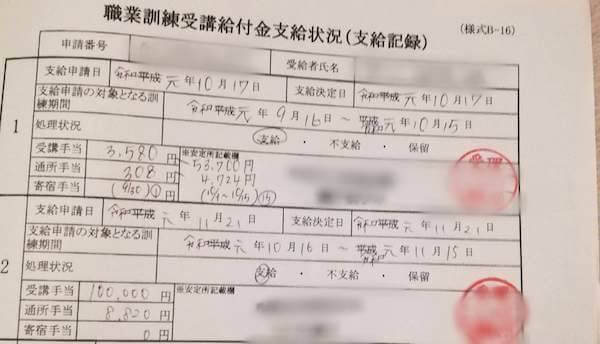 職業訓練受講給付金支給状況(支給記録)
(様式B-16)
申請番号 受給者氏名
1
支給申請日 令和平成 元年10月17日 支給決定日 令和平成 元年10月17日
支給申請の対象となる訓練期間 令和平成 元年9月16日 ~ 平成令和 元年10月15日
処理状況 支給 ・ 不支給 ・ 保留
受講手当 3,580円 ※安定所記載欄 53,700円
通所手当 308円 4,724円
寄宿手当 円
受理
2
支給申請日 令和平成 元年11月21日 支給決定日 令和平成 元年11月21日
支給申請の対象となる訓練期間 令和平成 元年10月16日 ~ 平成令和 元年11月15日
処理状況 支給 ・ 不支給 ・ 保留
受講手当 100,000円 ※安定所記載欄
通所手当 8,820円
寄宿手当 0円